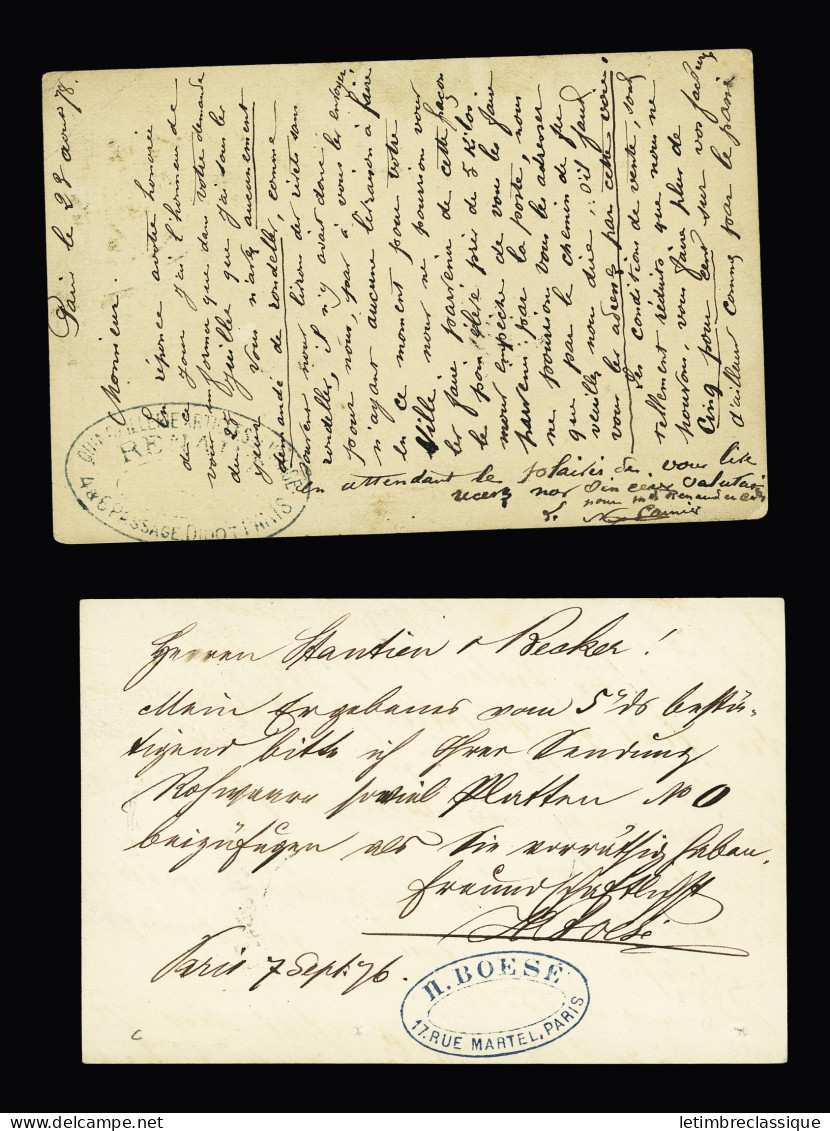 Paris le 22 aout 78.
Monsieur.
En réponce a votre honorée
de ce jour j'ai l'honneur de
vous informer que dans votre demande
du 25 Juillet que j'ai sous les
yeux vous n'avez aucunement
demandé de rondelle, comme
souvent nous livrons des rivets sans
rondelles, il n'y avait donc
pour nous, pas à vous les envoyer
n'ayant aucune livraison à faire
en ce moment pour votre
Ville nous ne pouvions vous
les faire parvenir de cette façon
le poin élevé près de 5 Kilos
nous empêche de vous les faire
parvenir par la poste, nous
ne pouvions vous les adresser
que par le chemin de fer
veuillez nous dire, s'il faut
vous les adresser par cette voie,
les conditions de vente, sont
tellement réduits que nous ne
pouvons, vous faire plus de
Cinq pour cent sur vos factures
d'ailleur comme par le passé
en attendant le plaisir de vous lire
recevez nos sinceres salutations
RENA
4 & 6 PASSAGE DIDOT PARIS
Herren Stantien & Becker!
Mein Ergebenes vom 5. ds bestä-
tigend bitte ich Ihrer Sendung
Rohwaare soviel Platten No 0
beizufügen als Sie vorräthig haben.
Freundschaftlichst
H Boese
Paris 7 Sept. 76.
H. BOESE
17, RUE MARTEL, PARIS
c
www.delcampe.net
letimbreclassique